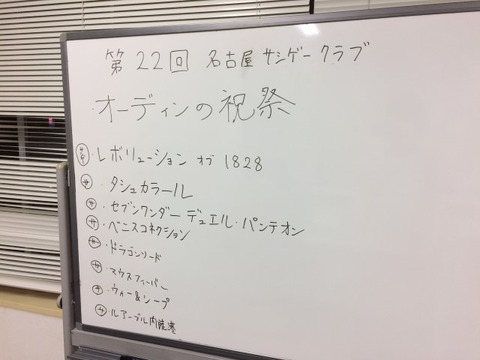 第22回 名古屋サンゲークラブ
・オーディンの祝祭
・レボリューション オブ 1828
・タシュカラール
・セブンワンダー デュエル・パンテオン
・ベニスコネクション
・ドラゴンソード
・マウスフィーバー
・ウォー&シープ
・ルアーブル内陸港